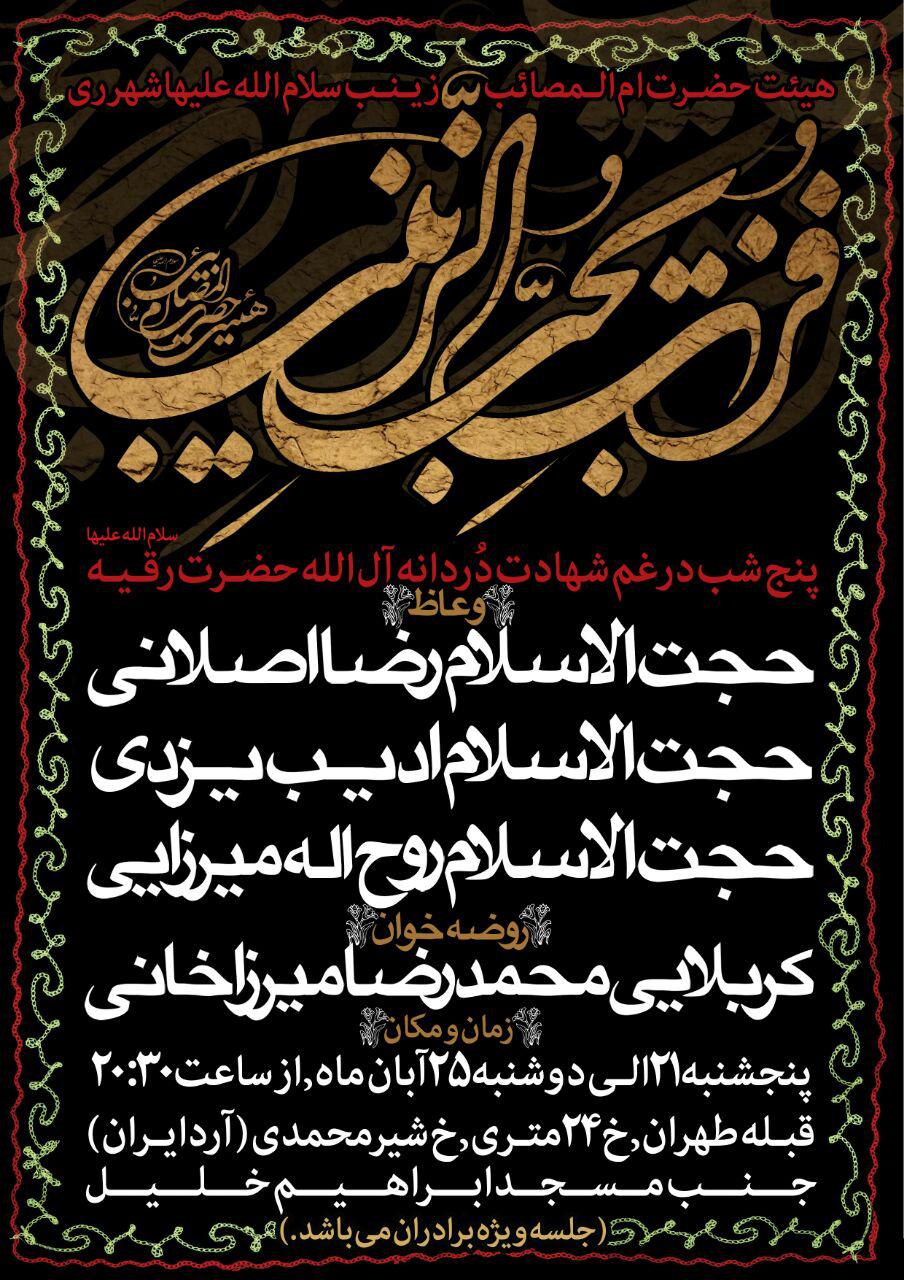 هیئت حضرت ام المصائب زینب سلام الله علیها شهر ری
فزت و بحب الزینب
هیئت حضرت ام المصائب
سلام الله علیها
پنج شب در غم شهادت دُردانه آل الله حضرت رقیه
وعاظ
حجت الاسلام رضا اصلانی
حجت الاسلام ادیب یزدی
حجت الاسلام روح اله میرزایی
روضه خوان
کربلایی محمدرضا میرزاخانی
زمان و مکان
پنجشنبه ۲۱ الی دوشنبه ۲۵ آبان ماه , از ساعت ۲۰:۳۰
قبله طهران , خ ۲۴ متری , خ شیرمحمدی (آرد ایران)
جنب مسجد ابراهیم خلیل
(جلسه ویژه برادران می باشد.)